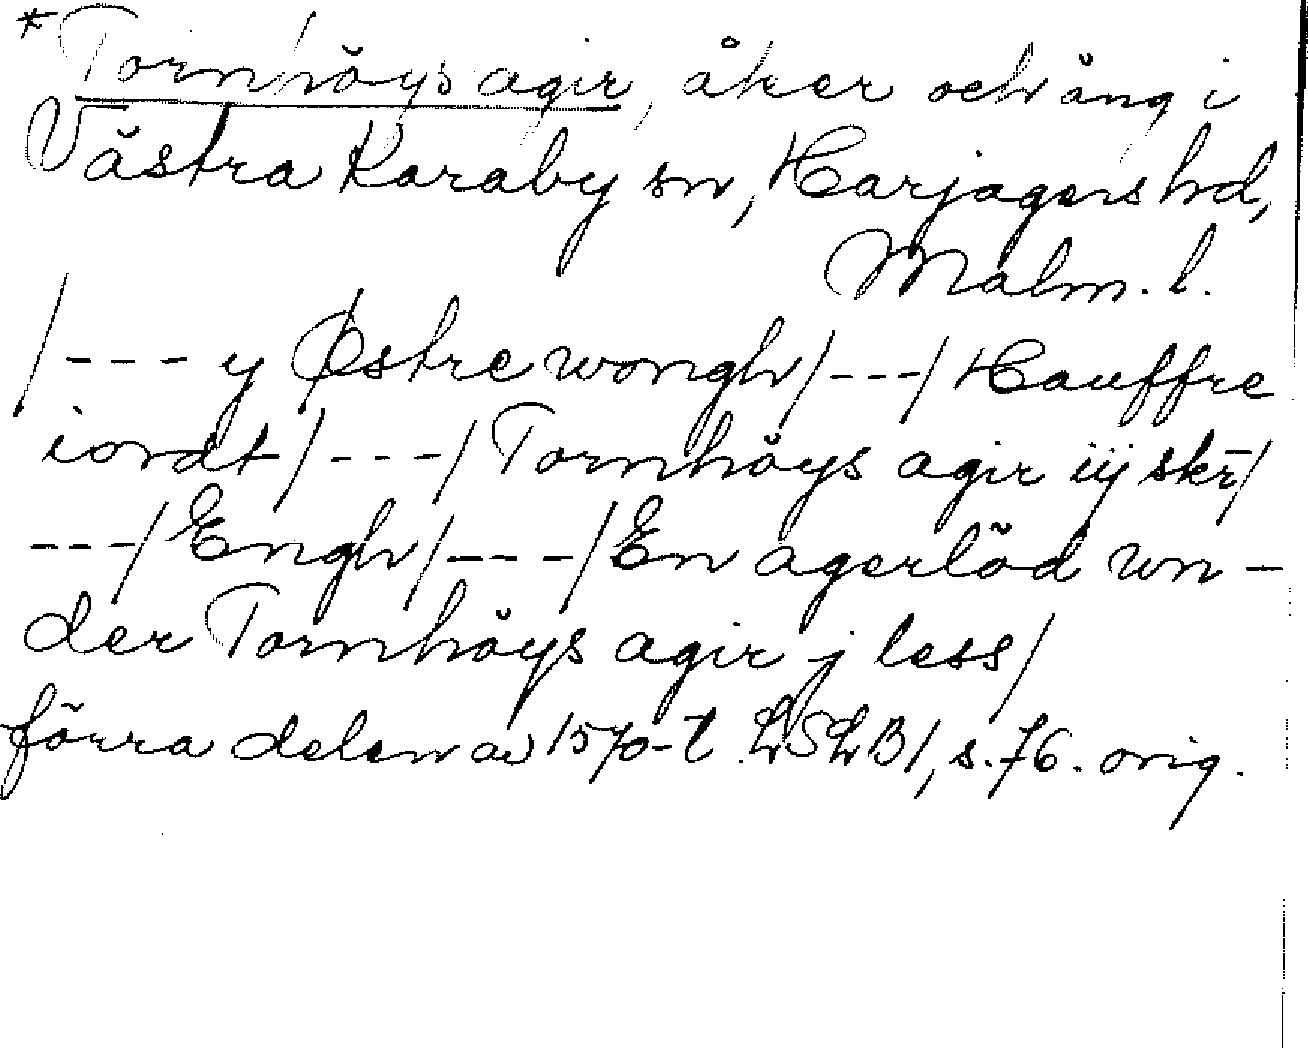 *Tornhöys agir, åker och äng i
Västra Karaby sn, Harjagers hd,
Malm. l.
/--- y Østre wongh/---/ Hauffre
iordt/---/ Tornhöys agir iij skr̄/
---/ Engh/---/ En agerlöd wn-
der Tornhöys agir j less/
förra delen av 1570-t. LSLB1, s. 76. orig.